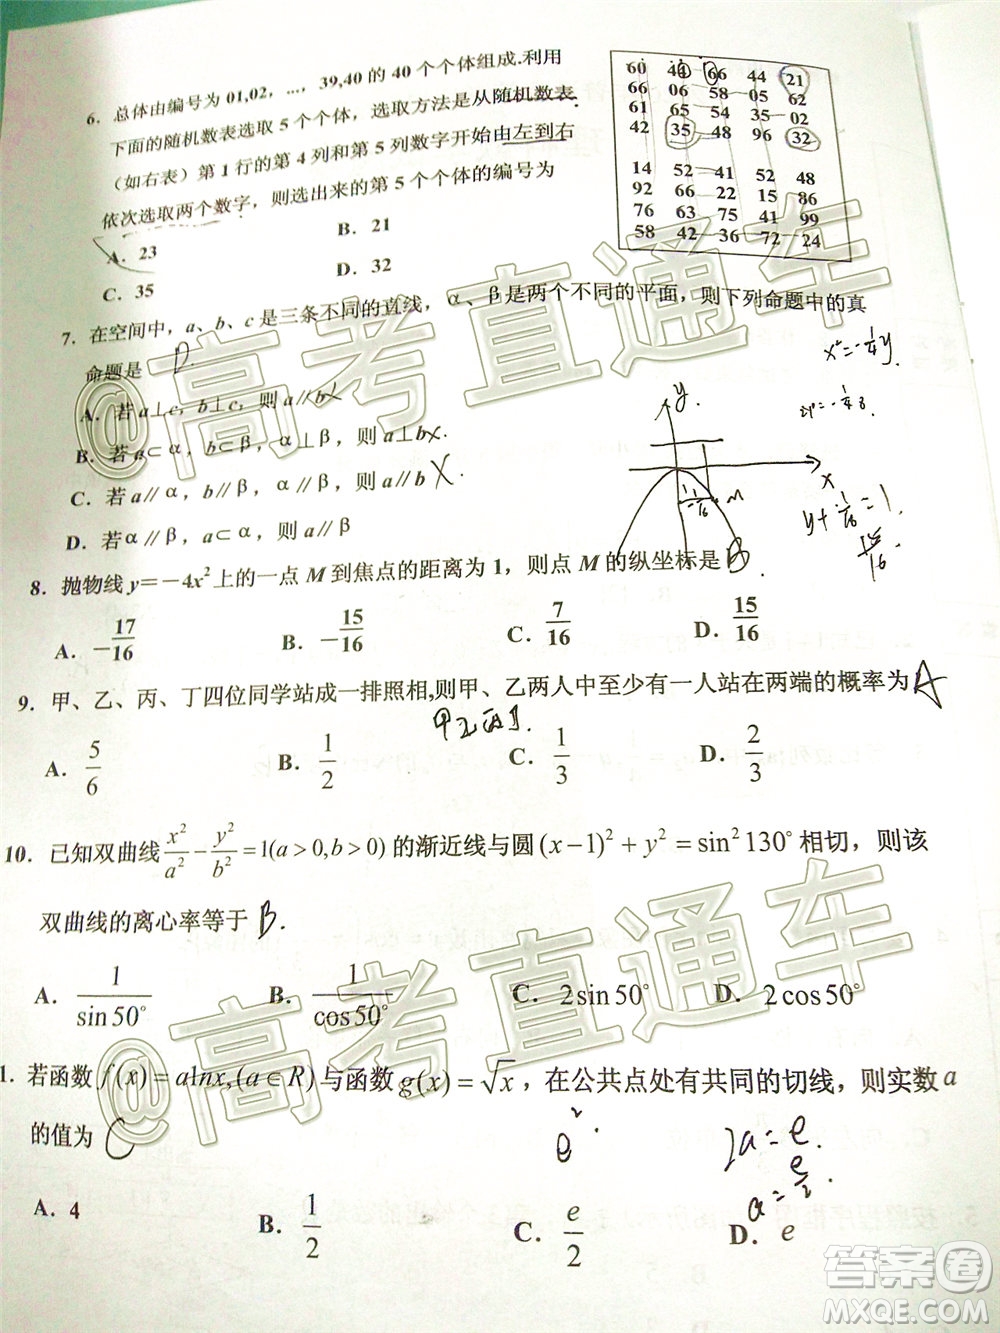 6. 总体由编号为 01,02, …, 39,40 的 40 个个体组成.利用
下面的随机数表选取 5 个个体, 选取方法是从随机数表
(如右表) 第 1 行的第 4 列和第 5 列数字开始由左到右
依次选取两个数字, 则选出来的第 5 个个体的编号为
A. 23
B. 21
C. 35
D. 32
60 44 66 44 21
66 06 58 05 62
61 65 54 35 02
42 35 48 96 32
14 52 41 52 48
92 66 22 15 86
76 63 75 41 99
58 42 36 72 24
7. 在空间中, a、b、c 是三条不同的直线, α、β是两个不同的平面, 则下列命题中的真
命题是 D.
A. 若 a⊥c, b⊥c, 则 a∥b
B. 若 a⊂α, b⊂β, α⊥β, 则 a⊥b
C. 若 a∥α, b∥β, α∥β, 则 a∥b
D. 若α∥β, a⊂α, 则 a∥β
x²=-1/4 y
y
x
M
y+1/16=1
15/16
8. 抛物线 y=-4x² 上的一点 M 到焦点的距离为 1, 则点 M 的纵坐标是 B
A. -17/16
B. -15/16
C. 7/16
D. 15/16
9. 甲、乙、丙、丁四位同学站成一排照相,则甲、乙两人中至少有一人站在两端的概率为 A
甲乙丙丁.
A. 5/6
B. 1/2
C. 1/3
D. 2/3
10. 已知双曲线 x²/a² - y²/b² =1(a>0,b>0) 的渐近线与圆 (x-1)²+y²=sin²130° 相切, 则该
双曲线的离心率等于 B.
A. 1/sin50°
B. 1/cos50°
C. 2sin50°
D. 2cos50°
1. 若函数 f(x)=alnx,(a∈R) 与函数 g(x)=√x, 在公共点处有共同的切线, 则实数 a
的值为 C
e².
2a=e.
a=e/2.
A. 4
B. 1/2
C. e/2
D. e
@高考直通车
@高考直通车
答案圈
MXQE.COM